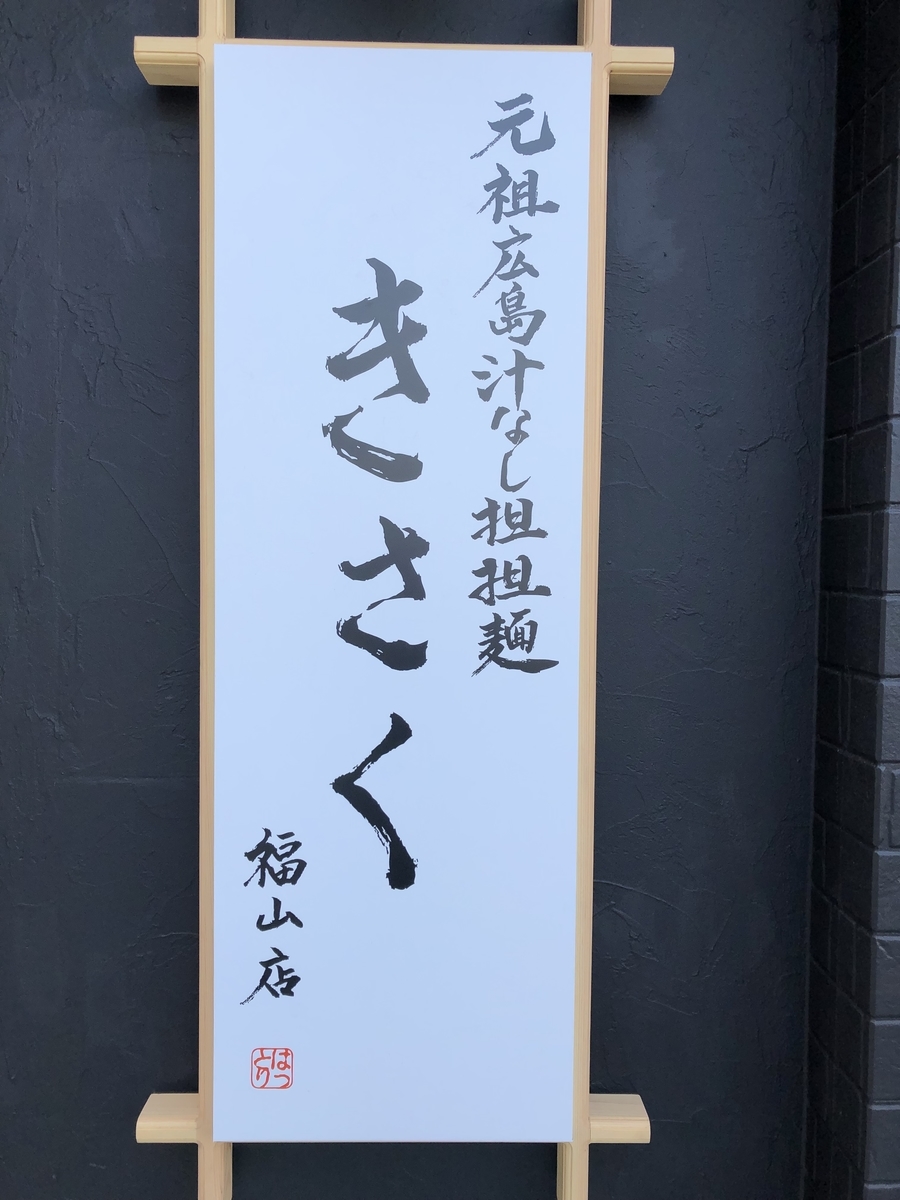 元祖広島汁なし担担麺
きさく
福山店
はつとり